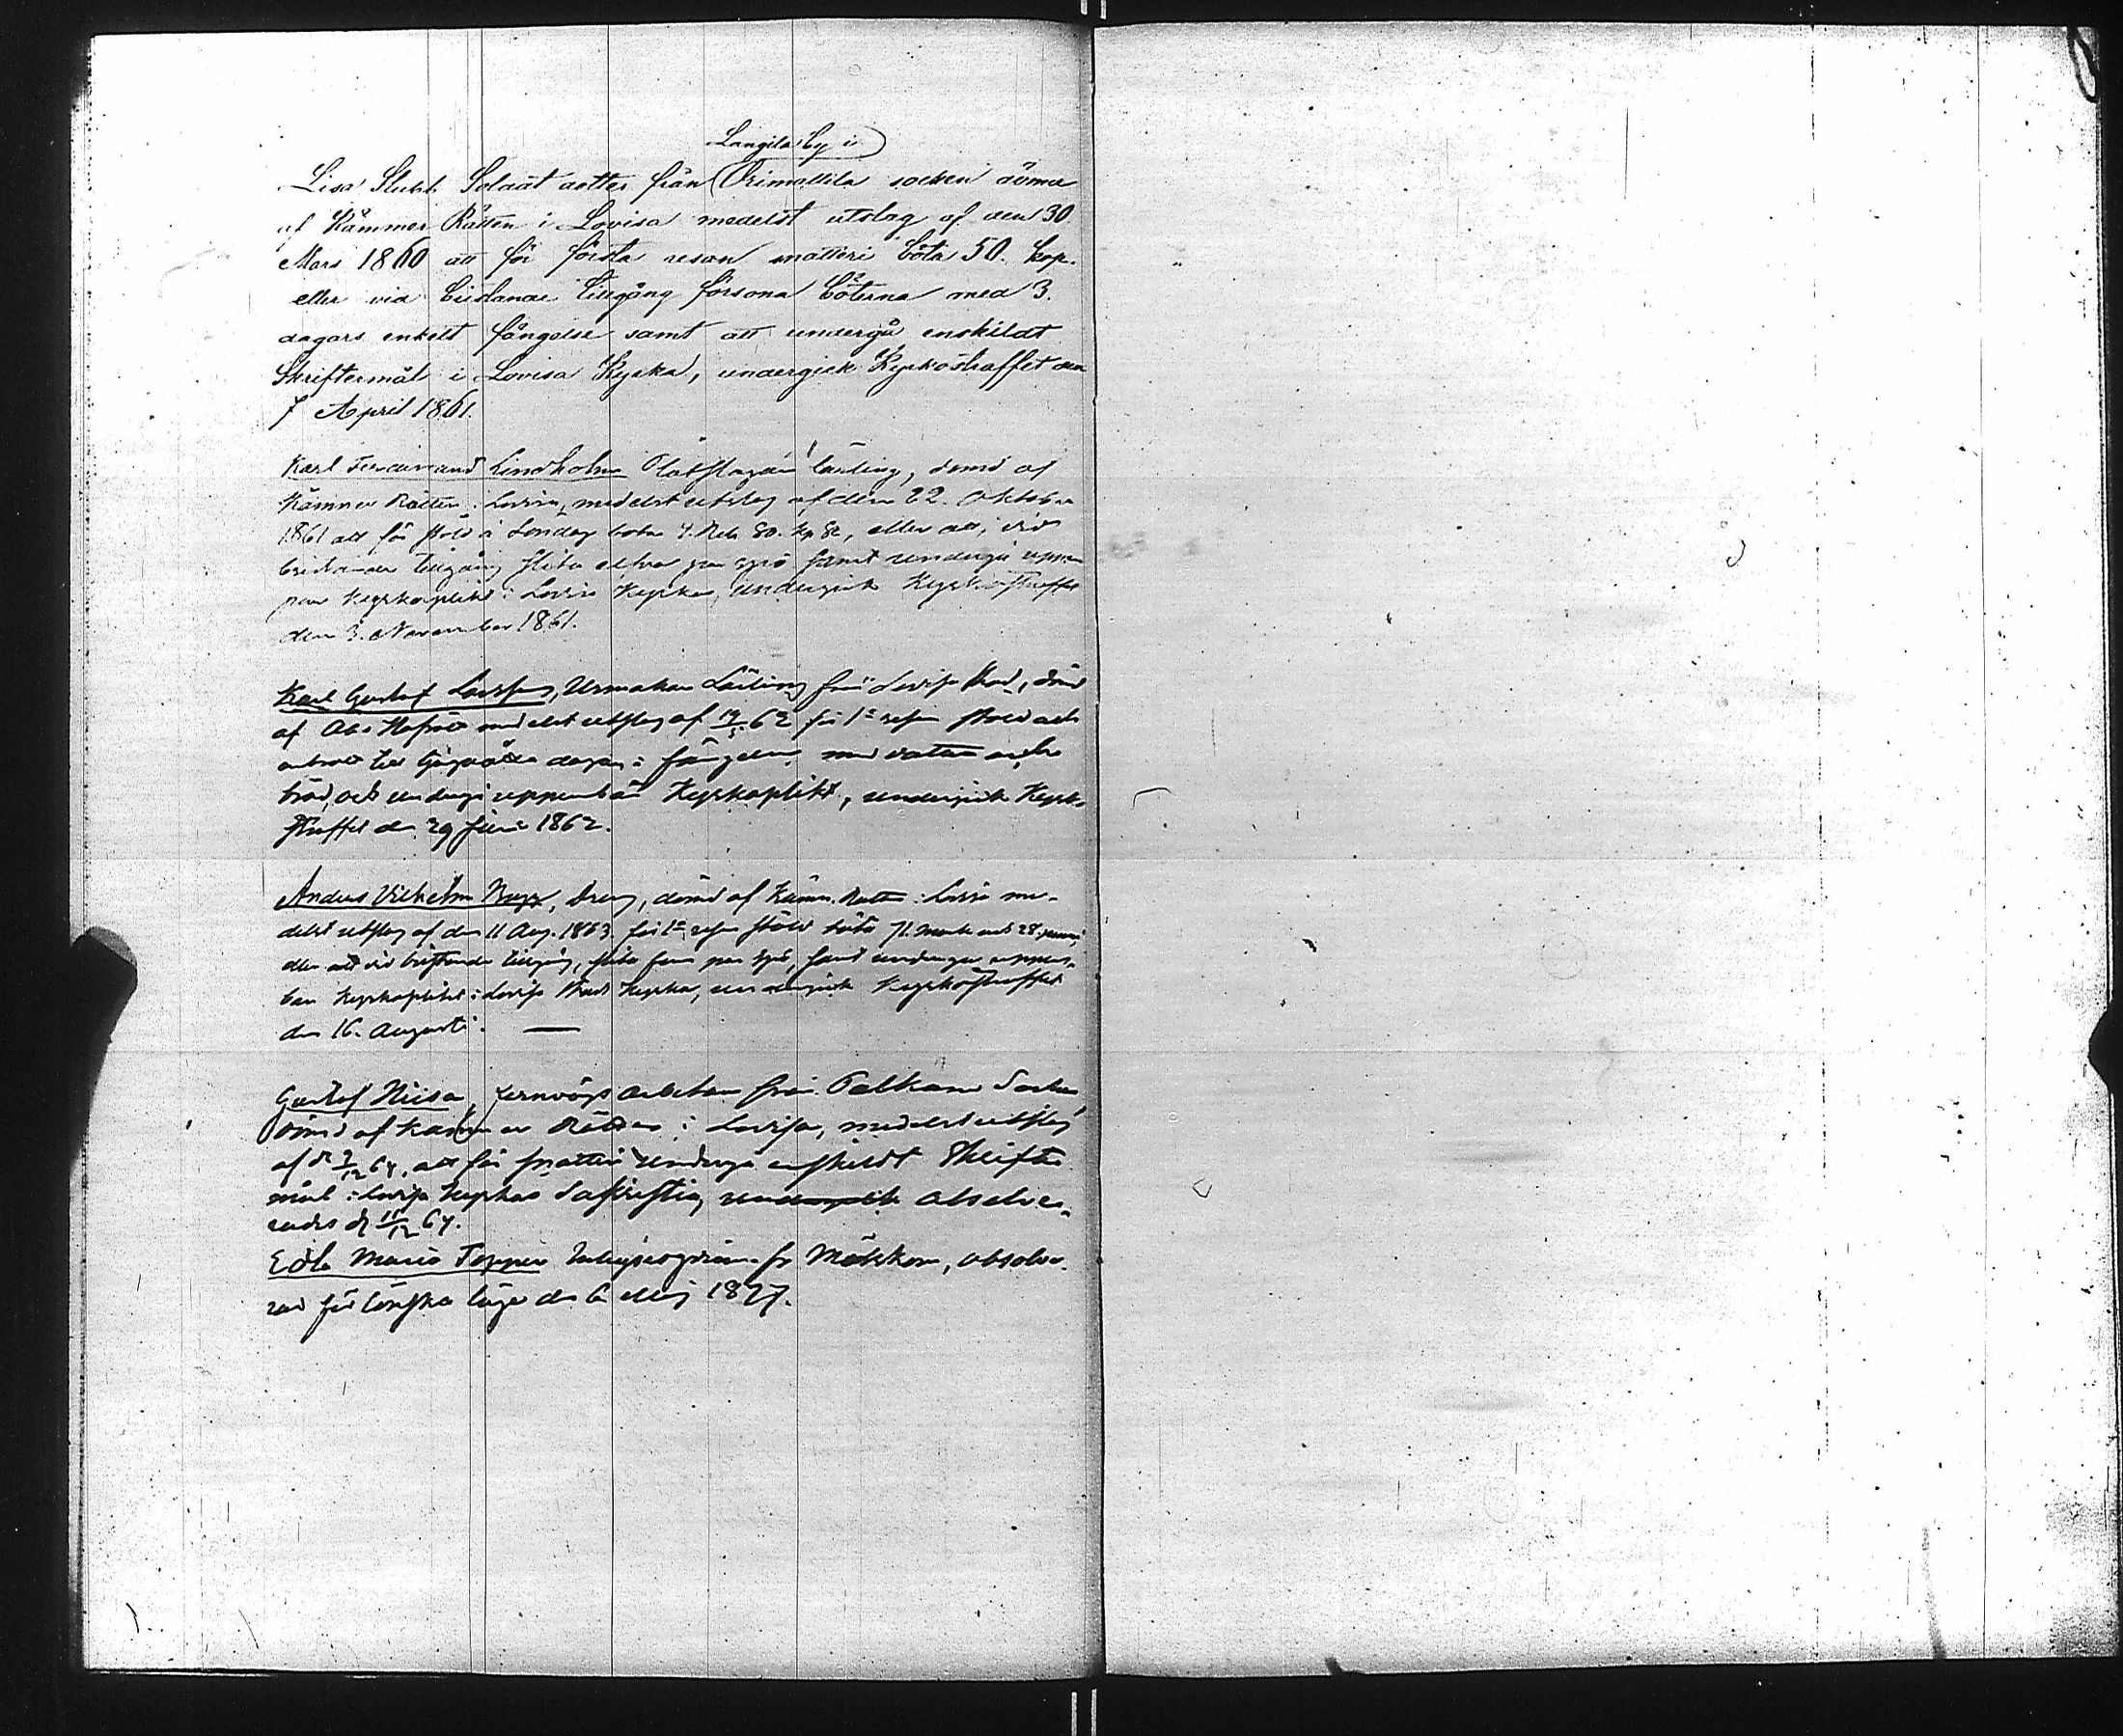 Langila by i
Lisa Stubb Soldat dotter från Orimattila socken dömd
af Kämner Rätten i Lovisa medelst utslag af den 30
Mars 1860 att för första resan mätteri böta 50. kop.
eller vid bristande tillgång försona böterna med 3.
dagars enkelt fängelse samt att undergå enskildt
Skriftermål i Lovisa Kyrka, undergick Kyrkostraffet den
7 April 1861.
Karl Ferdinand Lindholm lärling, dömd af
Kämner Rätten i Lovisa, medelst utslag af den 22. Oktober
1861 att för stöld å Söndag böta 7. Rub. 80. kop. eller att, vid
bristande tillgång slita par spö samt undergå uppen
bar Kyrkoplikt i Lovisa Kyrka, undergick Kyrkostraffet
den 3. November 1861.
Karl Gustaf Larsson, Urmakare Lärling från Lovisa stad, dömd
af Åbo Hofrätt medelst utslag af 62 för 1a resan stöld och
inbrott till dagars fängelse med vatten och
bröd, och undergå uppenbar Kyrkoplikt, undergick Kyrko
straffet den 29 Juni 1862.
Anders Vilhelm, dreng, dömd af Kämn. Rätten i Lovisa me-
delst utslag af den 11 Aug. 1863 för 1a resan stöld böta 71. mark och 28. penni,
eller att vid bristande tillgång, slita fem par spö, samt undergå uppen-
bar Kyrkoplikt i Lovisa stads Kyrka, undergick Kyrkostraffet
den 16. Augusti.
Gustaf Niisa, jernvägs arbetare från Pelkane Socken,
dömd af Kämner Rätten i Lovisa, medelst utslag
af d. 64, att för snatteri undergå enskildt Skrifter
mål i Lovisa Kyrkas Sakristia, undergick absolve-
rades d. 11/12 64.
Edla Maria Topper fr Mörskom, absolve-
rad för lönska läge den 6 Maj 1877.